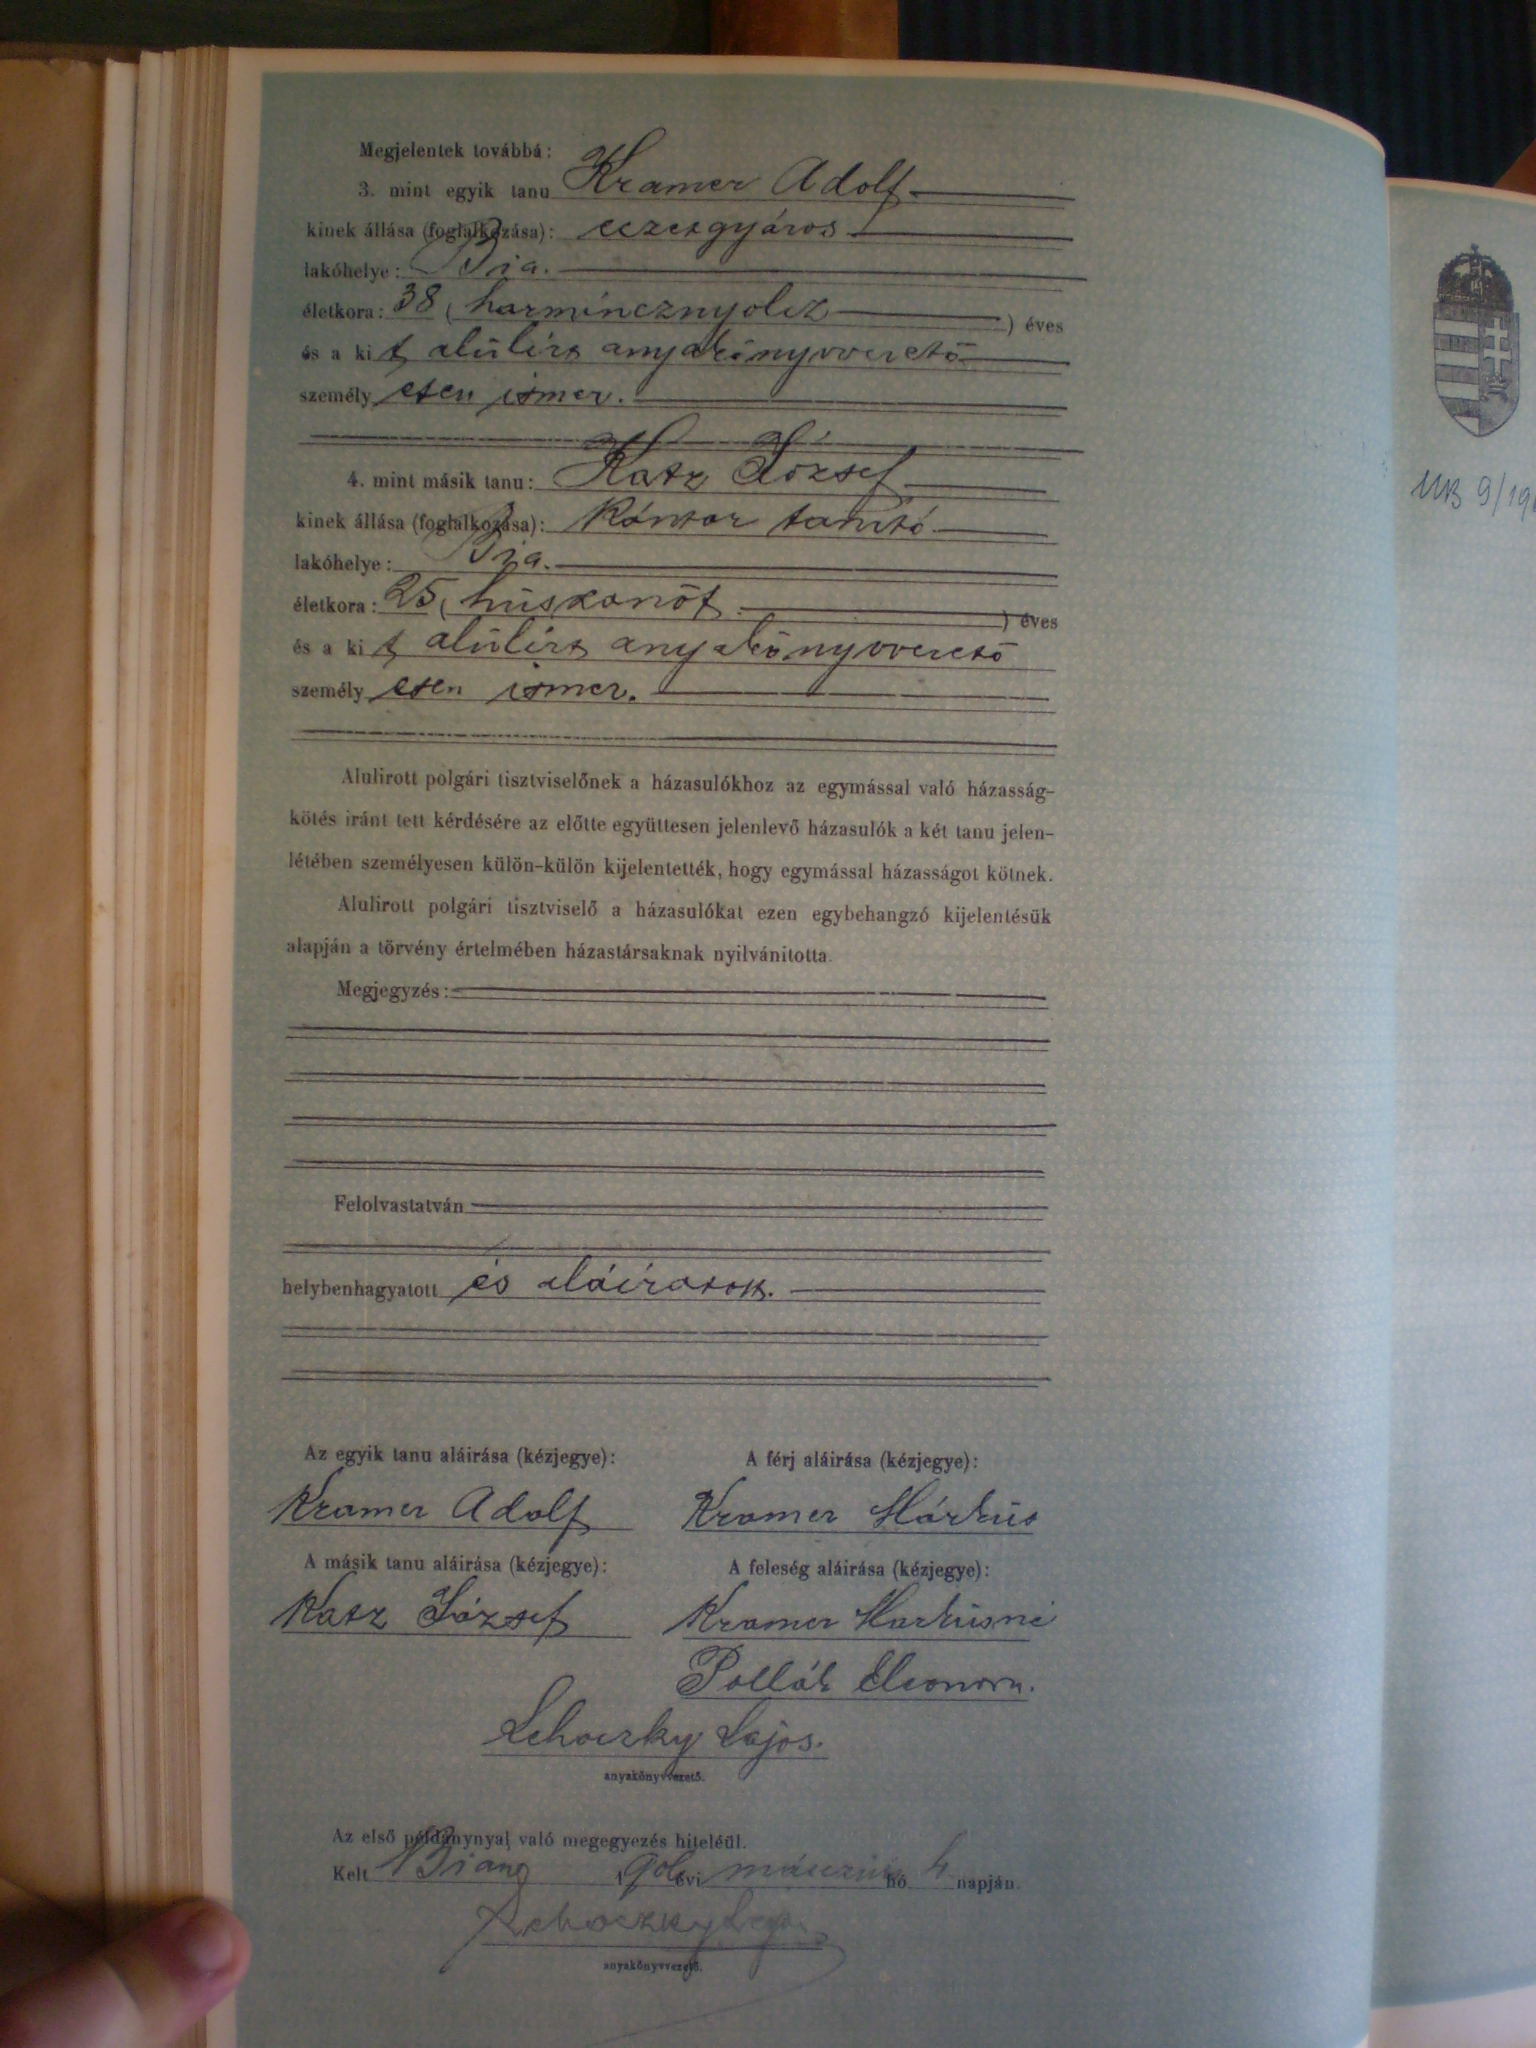 Megjelentek továbbá:
3. mint egyik tanu Kramer Adolf
kinek állása (foglalkozása): eczetgyáros
lakóhelye: Bia.
életkora: 38 (harmincznyolcz ) éves
és a ki t alúlirt anyakönyvvezető
személy esen ismer.
4. mint másik tanu: Katz József
kinek állása (foglalkozása): Kántor tanító
lakóhelye: Bia.
életkora: 25 (húszonöt ) éves
és a ki t alúlirt anyakönyvvezető
személy esen ismer.
Alulirott polgári tisztviselőnek a házasulókhoz az egymással való házasság-
kötés iránt tett kérdésére az előtte együttesen jelenlevő házasulók a két tanu jelen-
létében személyesen külön-külön kijelentették, hogy egymással házasságot kötnek.
Alulirott polgári tisztviselő a házasulókat ezen egybehangzó kijelentésük
alapján a törvény értelmében házastársaknak nyilvánitotta.
Megjegyzés:
Felolvastatván
helybenhagyatott és aláiratott.
Az egyik tanu aláirása (kézjegye): A férj aláirása (kézjegye):
Kramer Adolf Kramer Márkus
A másik tanu aláirása (kézjegye): A feleség aláirása (kézjegye):
Katz József Kramer Markusné
Pollák Eleonora.
Lehoczky Lajos.
anyakönyvvezető.
Az első példánynyal való megegyezés hiteléül.
Kelt Bián évi márczius hó 4 napján.
Lehoczky Lajos
anyakönyvvezető.